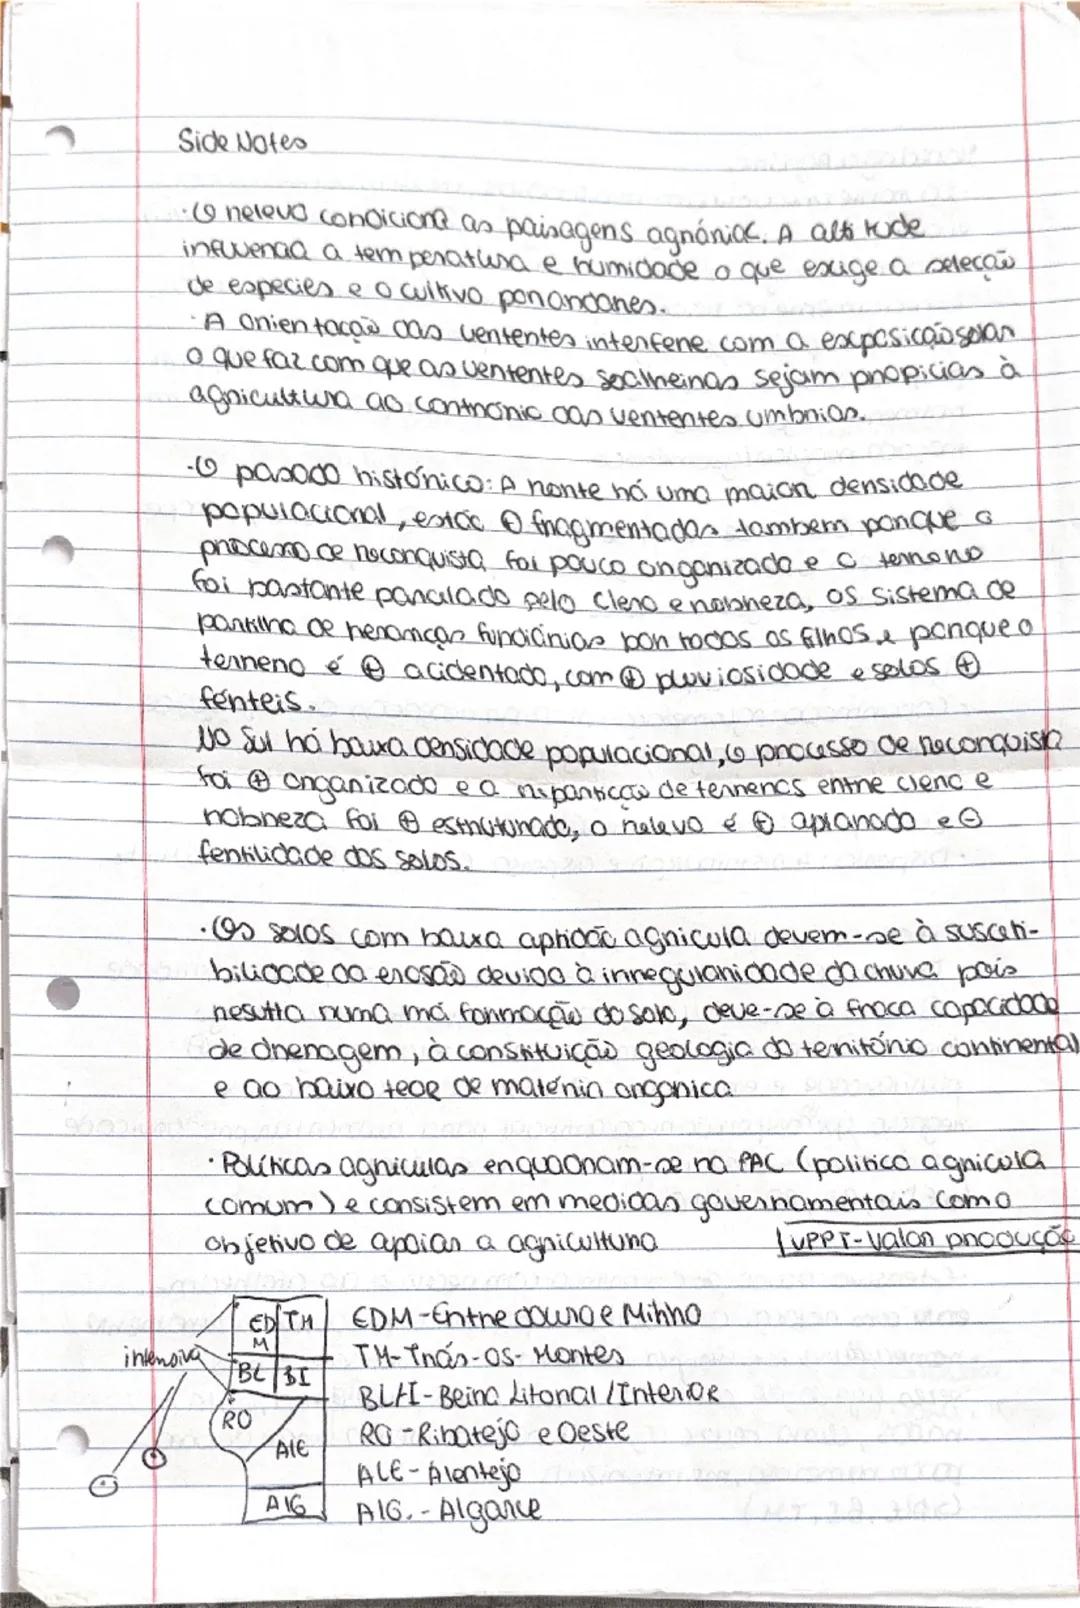 Side Notes
·O relevo condiciona as paisagens agrárias. A altitude
influencia a temperatura e humidade o que exige a seleção
de especies e o cultivo por andares.
·A orientação das vertentes interfere com a exposição solar
o que faz com que as vertentes soalheiras sejam propicias à
agricultura ao contrário das vertentes umbrias.
·O passado histórico: A norte há uma maior densidade
populacional, estão ⊕ fragmentadas tambem porque o
processo de reconquista foi pouco organizado e o terreno
foi bastante parcelado pelo Clero e nobreza, os sistema de
partilha de heranças fundiárias por todos os filhos e porque o
terreno é ⊕ acidentado, com ⊕ pluviosidade e solos ⊕
férteis.
No Sul há baixa densidade populacional, o processo de reconquista
foi ⊕ organizado e a repartição de terrenos entre clero e
nobreza foi ⊕ estruturada, o relevo é ⊕ aplanado e ⊖
fertilidade dos solos.
·Os solos com baixa aptidão agricola devem-se à susceti-
bilidade da erosão devido à irregularidade da chuva pois
resulta numa má formação do solo, deve-se à fraca capacidade
de drenagem, à constituição geologia do território continental
e ao baixo teor de matéria organica
·Políticas agriculas enquadram-se na PAC (politica agricola
comum) e consistem em medidas governamentais com o
objetivo de apoiar a agricultura
VPPT-Valor produção
ED M | TM EDM-Entre douro e Minho
intensiva
BL | BI TM-Trás-os-Montes
BL/I-Beira Litoral/Interior
RO RO-Ribatejo e Oeste
AlE ALE-Alentejo
AlG AlG.-Algarve